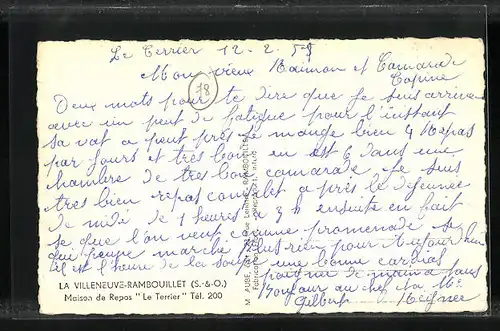 Le Terrier 12-2-55
Mon vieux Raimon et Camarade
Copine
78
Deux mots pour te dire que je suis arrivée
avec un peut de fatigue pour l'instant
sa vat a peut près je mange bien 4 Repas
par jours et très bon on est 6 dans une
chambre de très bon camarade je suis
très bien repos complet a près le déjeuner
de midi de 1 heures a 3 h ensuite on fait
se que l'on veut comme promenade
que peupe marché plus rien pour Aujourd'hui
il est l'heure de la une bonne
poigné de main a tous
Bonjour au chef
Gilbert
LA VILLENEUVE-RAMBOUILLET (S.-&-O.)
Maison de Repos "Le Terrier" Tél. 200